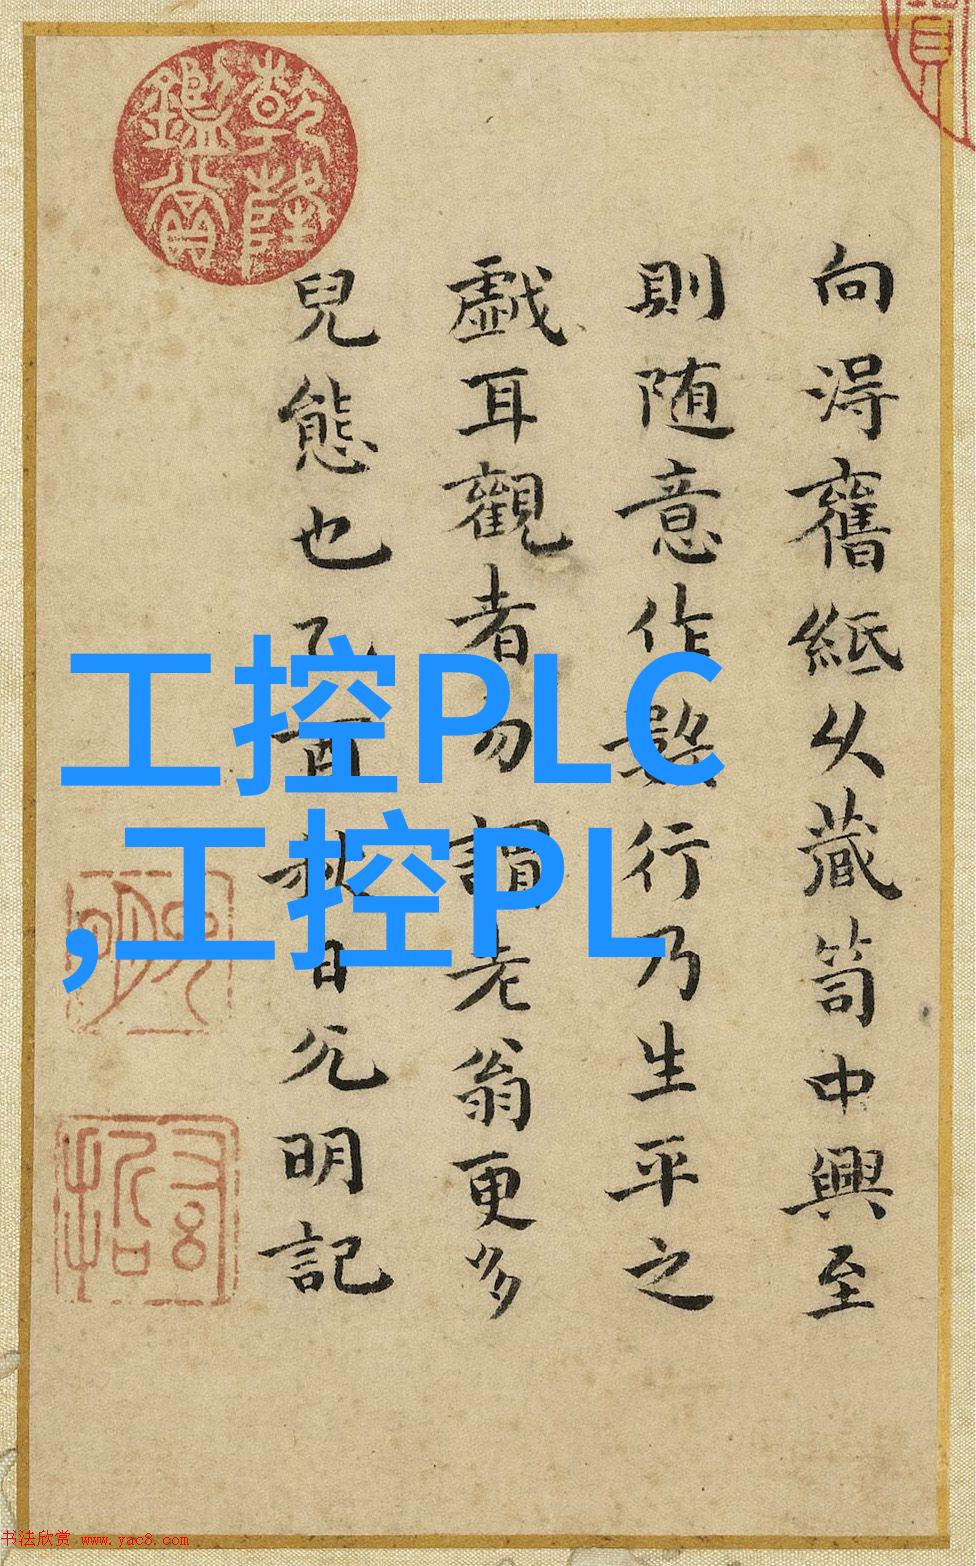 向得舊紙久藏笥中興至
則随意作數行乃生平之
戲耳觀者勿謂老翁更多
兒態也乙酉秋日允明記
乾隆
鑑賞
工控PLC
,工控PL
書法欣赏 www.yac8.com